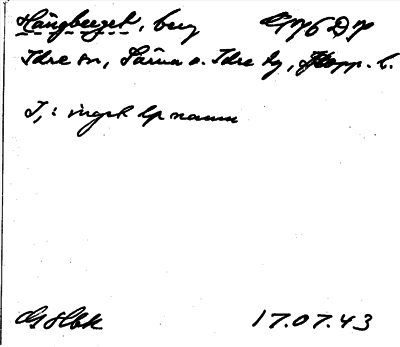 Hångberget, berg
Idre sn, Särna o. Idre tg, Kopp. l.
I, : inget lp namn
17.07.43